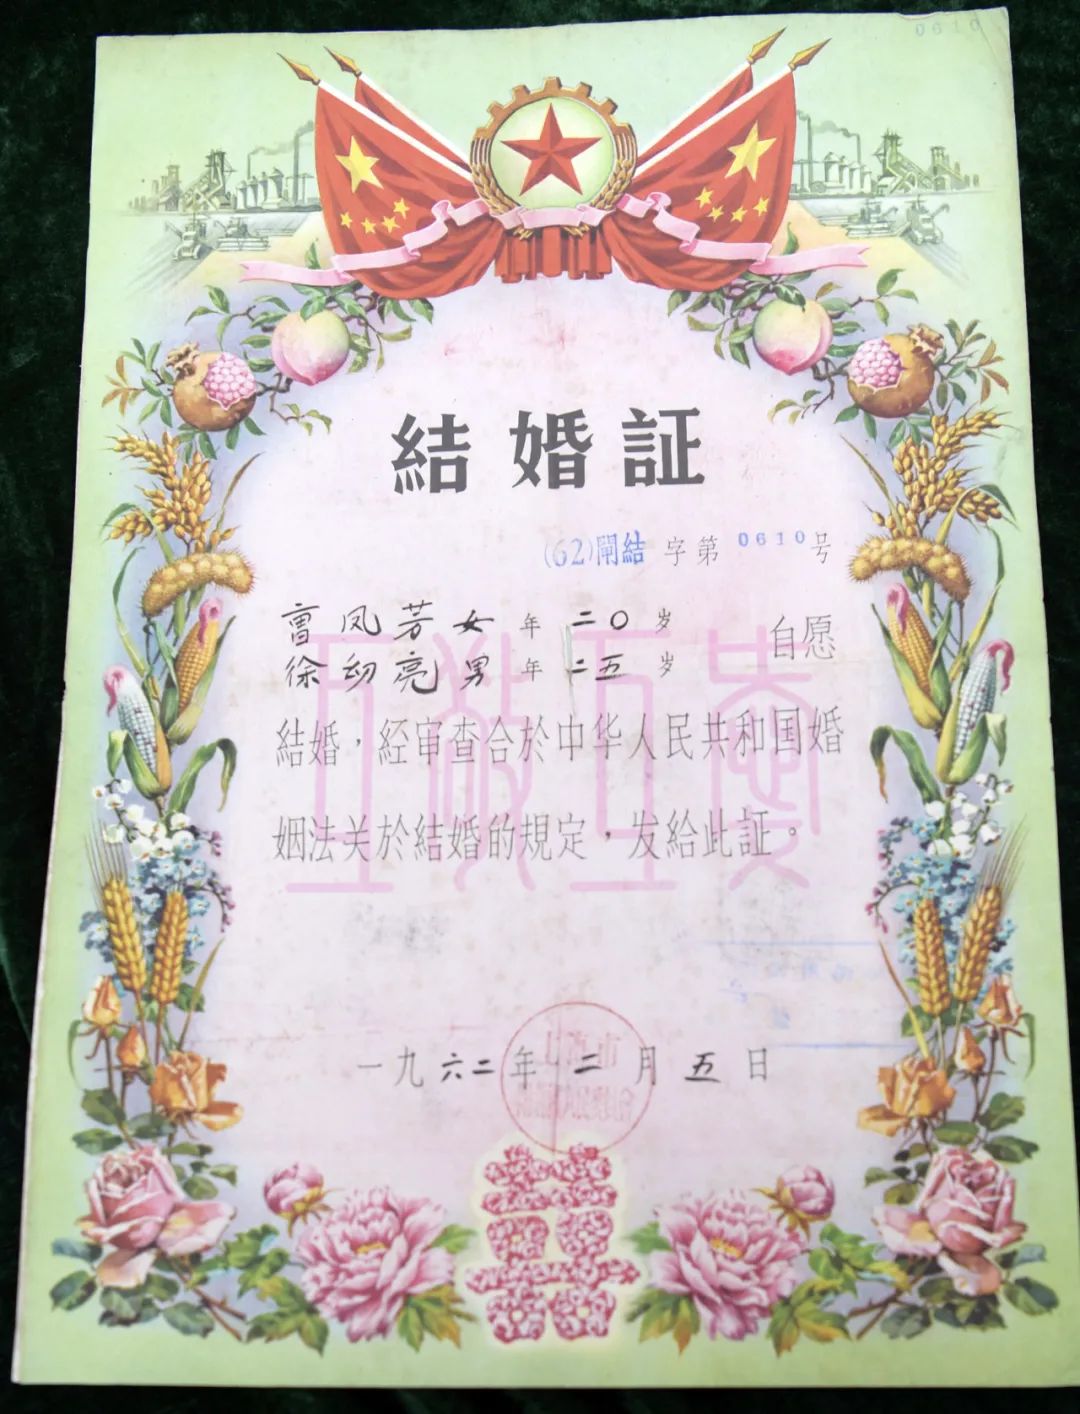 0610
結婚証
(62)閘結 字第 0610号
曹凤芳 女 年 二〇 岁
徐幼亮 男 年 二五 岁
自愿
結婚，経审查合於中华人民共和国婚
姻法关於結婚的規定，发給此証。
互敬互爱
上海市
一九六二年二月五日
囍